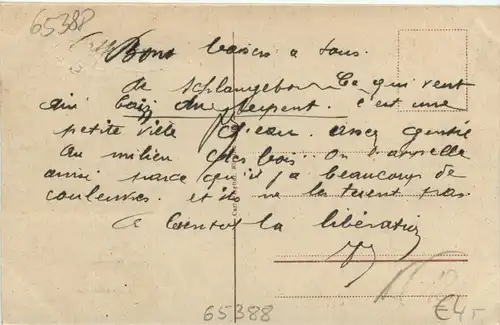 65388
Bons baisers a tous.
de Schlangenbad Ce qui veut
dire bain du serpent. c'est une
petite ville d'eau. assez gentie
au milieu des bois. On l'appelle
ainsi parce qu'il y a beaucoup de
couleuvres. et ils ne les tuent pas.
A bientot la libération
65388
€4